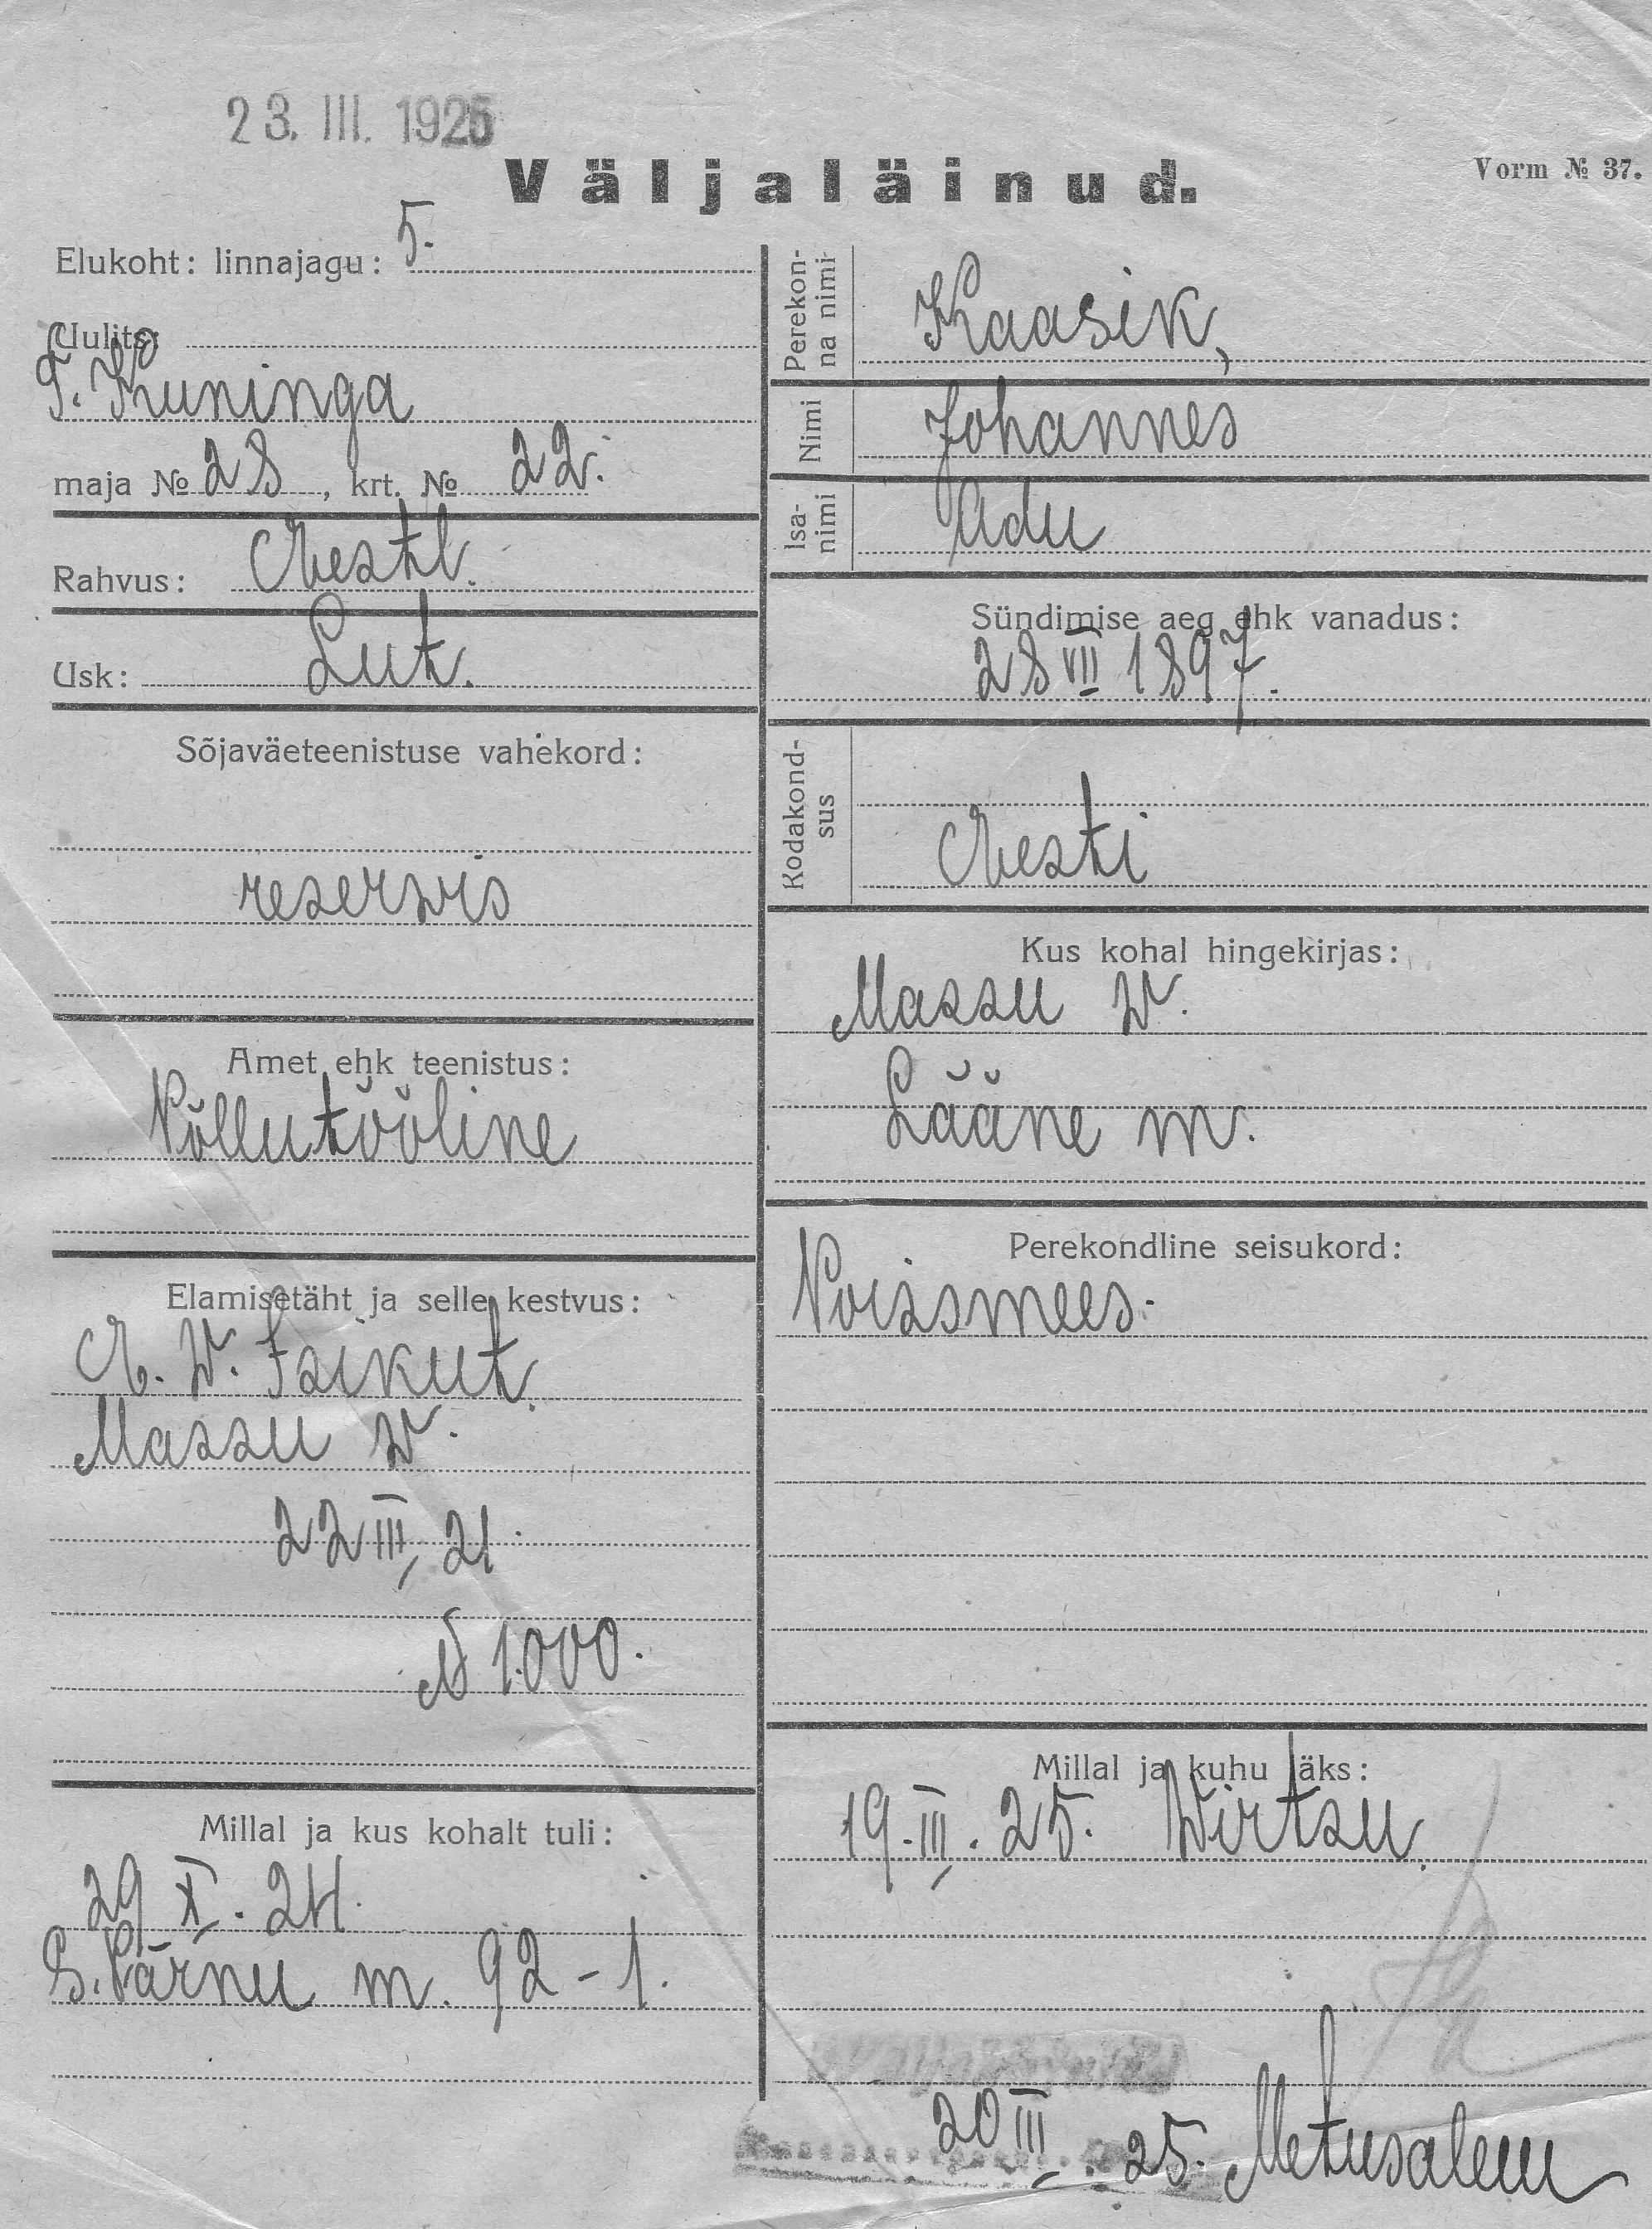 23. III. 1925
Väljaläinud.
Vorm № 37.
Elukoht: linnajagu: 5.
Uulits:
T. Kuninga
maja № 28, krt. № 22.
Rahvus: Eestl.
Usk: Lut.
Sõjaväeteenistuse vahekord:
reserwis
Amet ehk teenistus:
Põllutööline
Elamisetäht ja selle kestvus:
E. W. Isikut.
Massu w.
22 III 21.
№ 1000.
Millal ja kus kohalt tuli:
29 X. 24.
S. Pärnu m. 92-1.
Perekon-
na nimi
Kaasik,
Nimi
Johannes
Isa-
nimi
Adu
Sündimise aeg ehk vanadus:
28 VII 1897.
Kodakond-
sus
Eesti
Kus kohal hingekirjas:
Massu w.
Lääne m.
Perekondline seisukord:
Poissmees.
Millal ja kuhu läks:
19. III. 25. Wirtsu.
20 III. 25. Metusalem